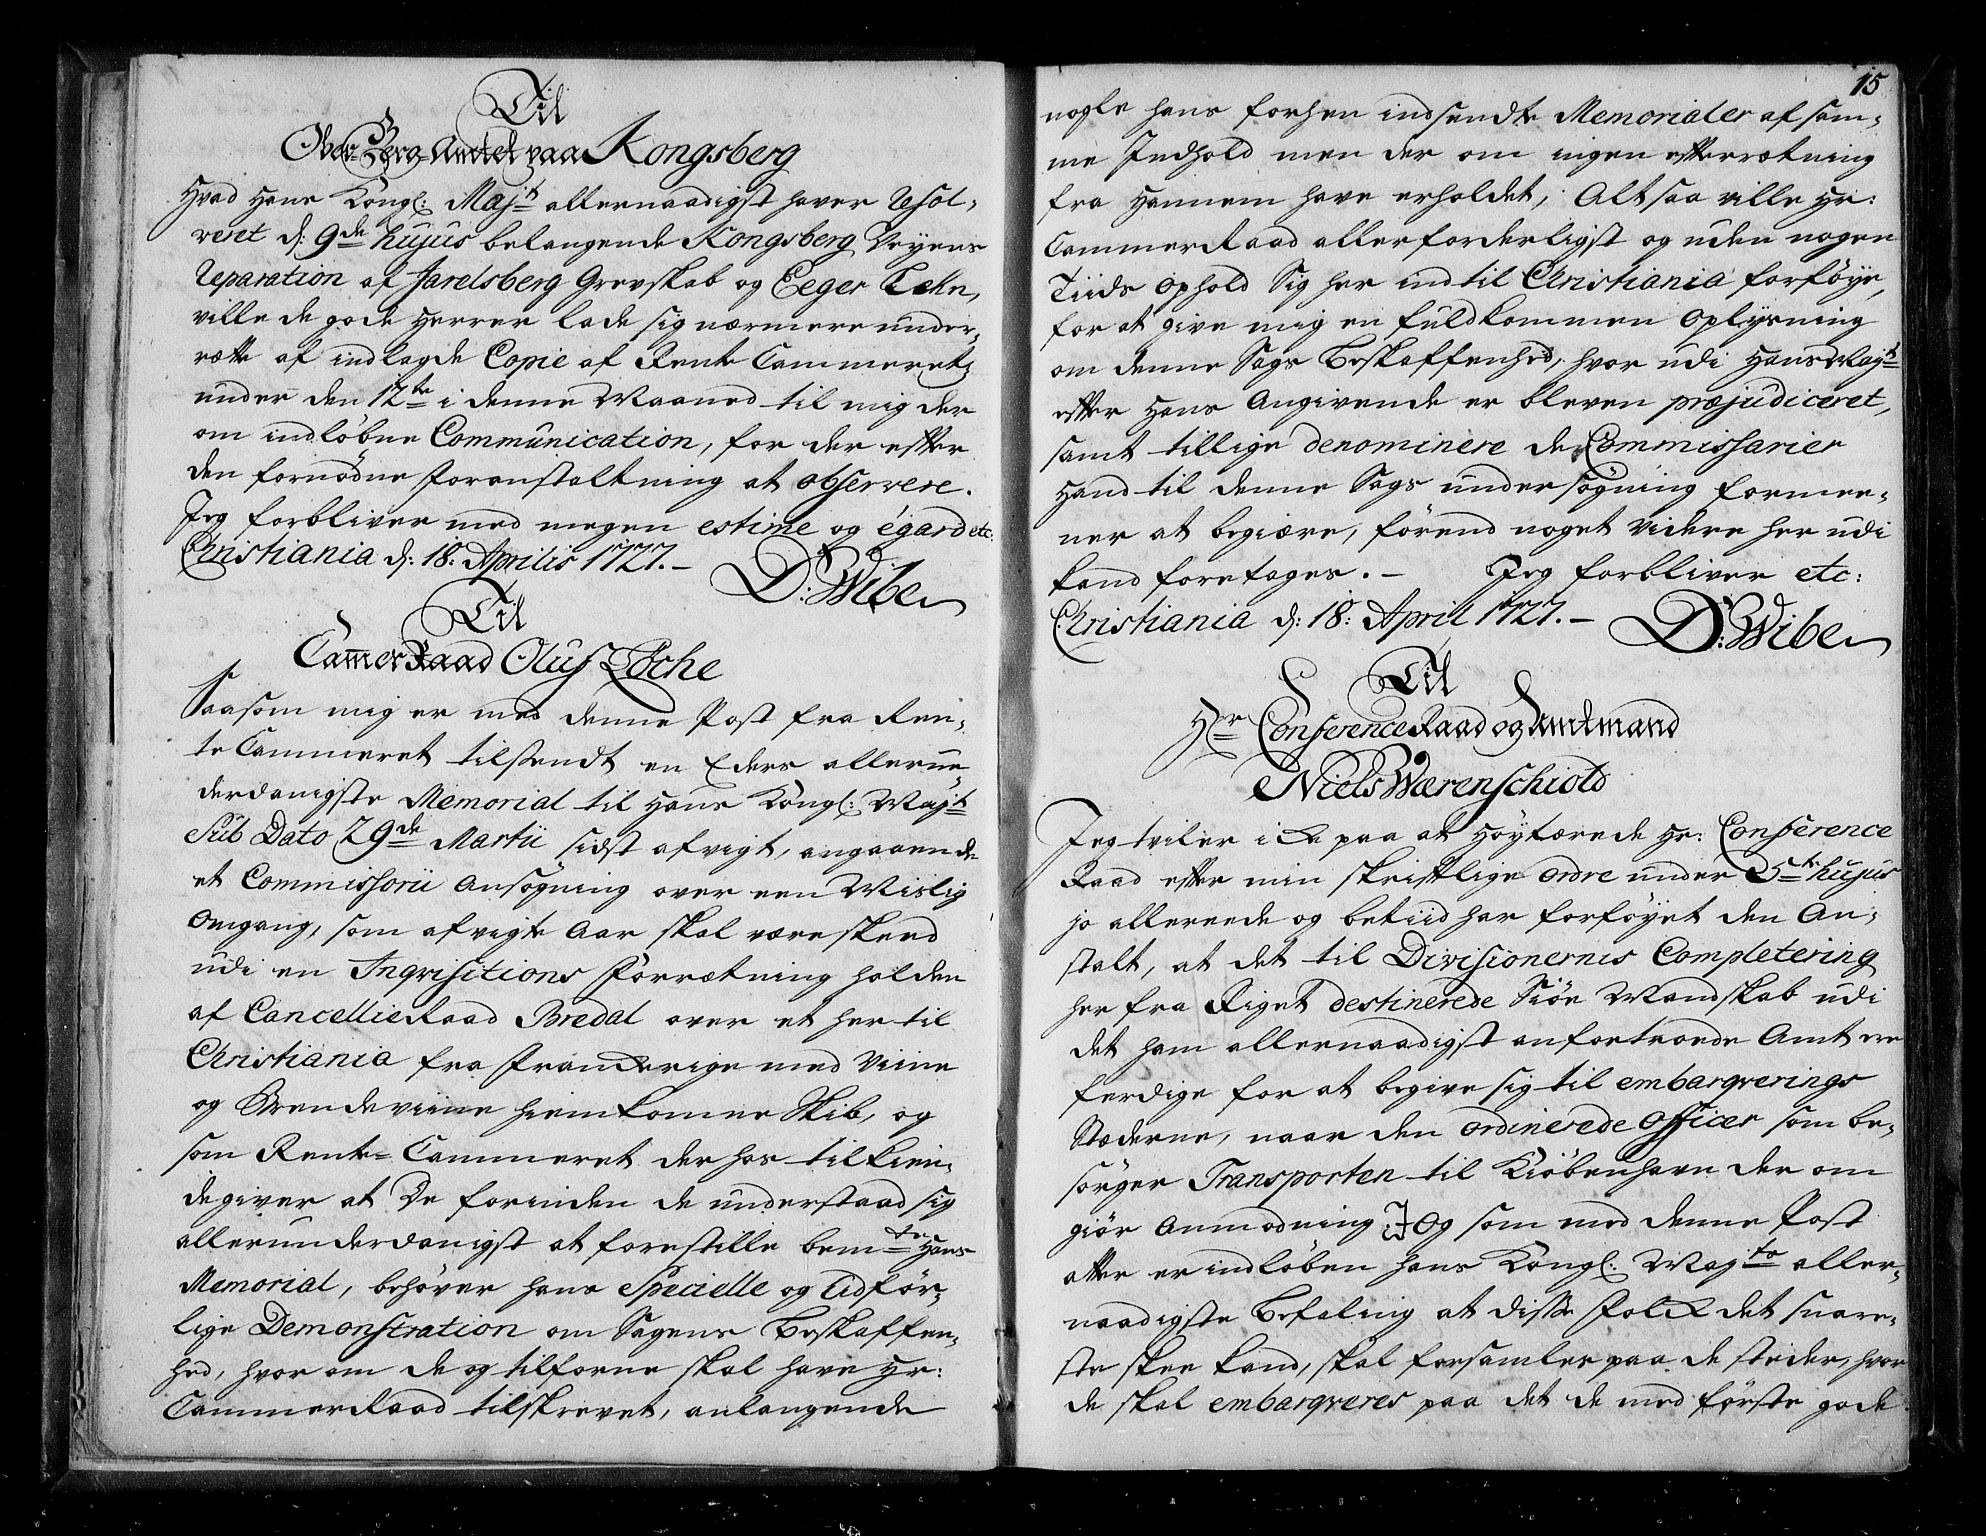 Til
Ober-Berg-Amtet paa Kongsberg
Hvad Hans Kongl: Majt allernaadigst haver Resol-
veret d: 9de hujus belangende Kongsberg Veyens
Reparation af Jarelsberg Grevskab og Eeger Lehn,
ville de gode Herrer lade sig nærmere under-
rette af indlagde Copie af Rente Cammerets
under den 12te i denne Maaned til mig der
om indløbne Communication, for der efter
den fornødne Foranstaltning at observere.
Jeg forbliver med megen estime og égard etc:
Christiania d: 18. Aprilis 1727.-
D: Wibe
Til
CammerRaad Oluf Loche
Saasom mig er med denne Post fra Ren-
te Cammeret tilsendt en Eders allerun-
derdanigste Memorial til Hans Kongl: Majt
Sub Dato 29de Martii sidst afvigt, angaaende
et Commissorii Ansøgning over een Mislig
Omgang, som afvigte Aar skal være skeed
udi en Inqvisitions Forrætning holden
af CancellieRaad Bredal over et her til
Christiania fra Franckerige med Viine
og Brendeviine hiemkomne Skib, og
som Rente-Cammeret der hos tilkien-
degiver at De forinden de understaad sig
allerunderdanigst at forestille bemte Hans
Memorial, behøver hans Specielle og Udfør-
lige Demonstration om Sagens Beskaffen-
hed, hvor om de og tilforne skal have Hr:
CammerRaad tilskrevet, anlangende
15
nogle hans forhen indsendte Memorialer af sam-
me Indhold men der om ingen efterrætning
fra Hannem have erholdet, Altsaa ville Hr:
CammerRaad allerforderligst og uden nogen
Tiids Ophold Sig her ind til Christiania forføye,
for at give mig en fuldkommen Oplysning
om denne Sags Beskaffenhed, hvor udi Hans Majt
efter Hans Angivende er bleven præjudiceret,
samt tillige denominere de Commissarier
Hand til denne Sags undersøgning formee-
ner at begiære, førend noget videre her udi
kand foretages.- Jeg forbliver etc:
Christiania d: 18: April 1727.-
D: Wibe
Til
Hr Conference Raad og Amtmand
Niels Wærenschiold
Jeg tviler icke paa at Høytærede Hr: Conference
Raad efter min skriftlige Ordre under 5te hujus
jo allereede og betiid har forføyet den An-
stalt, at det til Divisionernis Completering
her fra Riget destinerede Siøe Mandskab udi
det ham allernaadigst anfortroede Amt ere
ferdige for at begive sig til embarqverings
Stæderne, naar den ordinerede Officer som be-
sørger Transporten til Kiøbenhavn der om
giør Anmodning; Og som med denne Post
atter er indløben hans Kongl: Majts aller-
naadigste Befaling at disse Folck det snare-
ste skee kand, skal forsamles paa de steder, hvor
de skal embarqveres paa det de med første gode